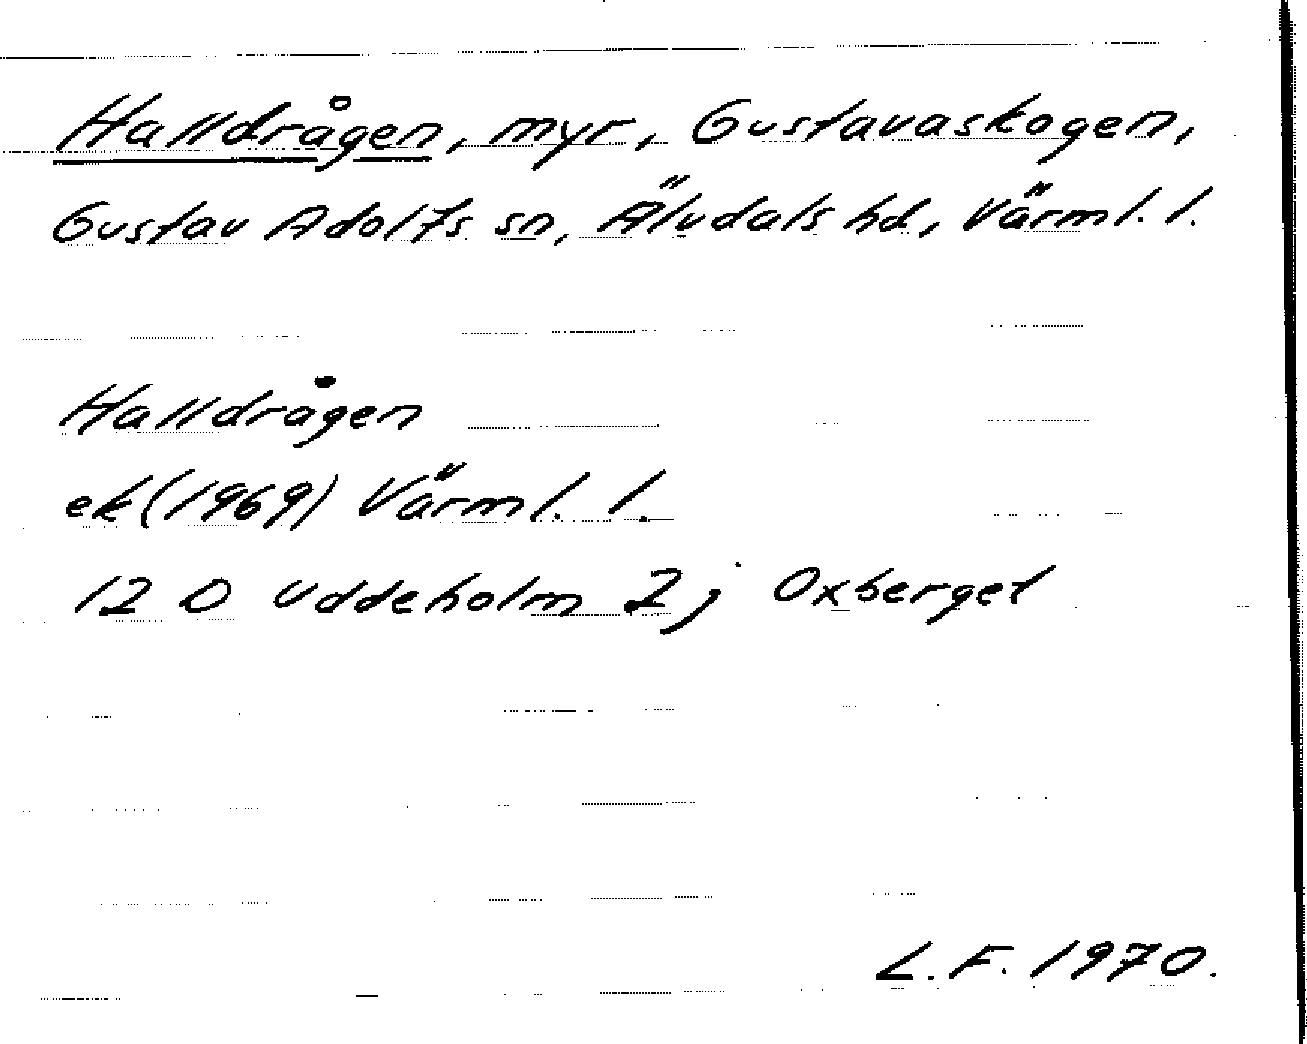 Halldrågen, myr, Gustavaskogen,
Gustav Adolfs sn, Älvdals hd, Värml. l.
Halldrågen
ek (1969) Värml. l.
12 D Uddeholm 2j Oxberget
L.F. 1970.